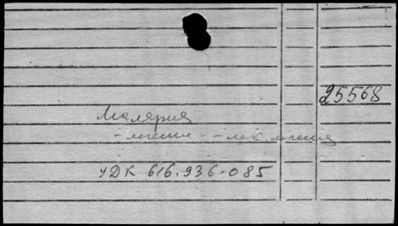 25568
Малярия
- лечение - лек. лечение
УДК 616.936-085